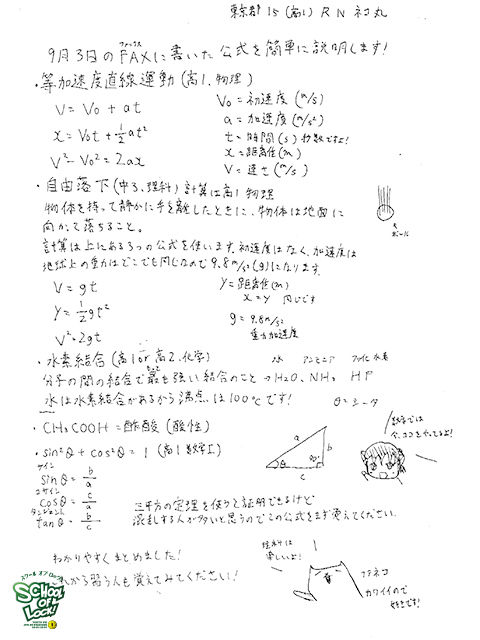 東京都 15 (高1) R N ネコ丸
9月3日のFAXに書いた公式を簡単に説明します!
ファックス
・等加速度直線運動(高1.物理)
V = V₀ + at
x = V₀t + 1/2 at²
V² - V₀² = 2ax
V₀ = 初速度 (m/s)
a = 加速度 (m/s²)
t = 時間 (s) 秒数ですよ!
x = 距離(m)
V = 速さ (m/s)
・自由落下 (中3.理科) 計算は高1 物理
物体を持って静かに手を離したときに、物体は地面に
向かって落ちること。
ボール
計算は上にある3つの公式を使います.初速度はなく、加速度は
地球上の重力はどこでも同じなので 9.8 m/s² (g)になります
V = gt
y = 1/2 gt²
V² = 2gt
y = 距離(m)
x = y 同じです
g = 9.8 m/s²
重力加速度
・水素結合 (高1 or 高2.化学)
水 アンモニア フッ化水素
分子の間の結合で最も強い結合のこと→H₂O、NH₃ HF
水は水素結合があるから沸点は100℃です!
θ=シータ
・CH₃COOH = 酢酸 (酸性)
・sin²θ + cos²θ = 1 (高1 数学I.)
サイン
sinθ = b/a
コサイン
cosθ = c/a
タンジェント
tanθ = b/c
a
b
c
θ
90°
数学では
今、ココをやってるよ!
三平方の定理を使うと証明できるけど
混乱する人が多いと思うのでこの公式をまず覚えてください.
わかりやすくまとめました!
これから習う人も覚えてみてください!
理科は
楽しいよ!
ブタネコ
カワイイので
好きです!
スクール オブ ロック!
SCHOOL OF LOCK!